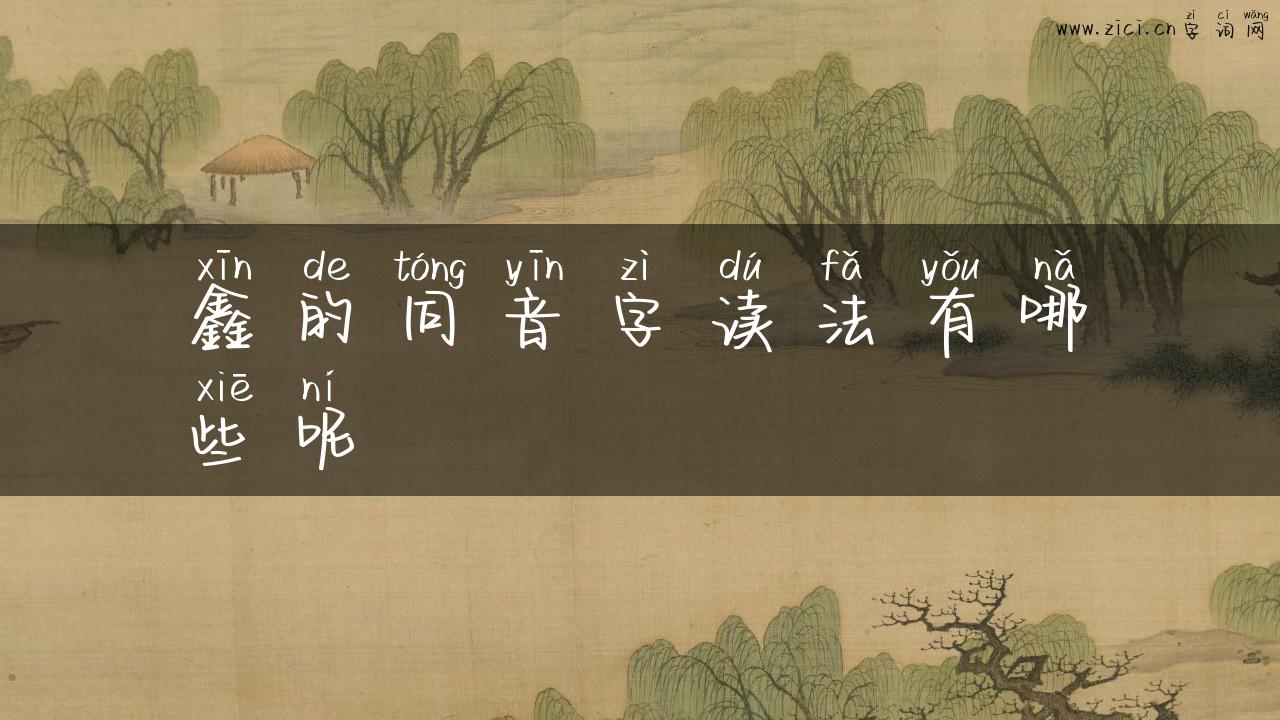 zì cí wǎng
www.zici.cn 字 词 网
xīn de tóng yīn zì dú fǎ yǒu nǎ
鑫 的 同 音 字 读 法 有 哪
xiē ní
些 呢